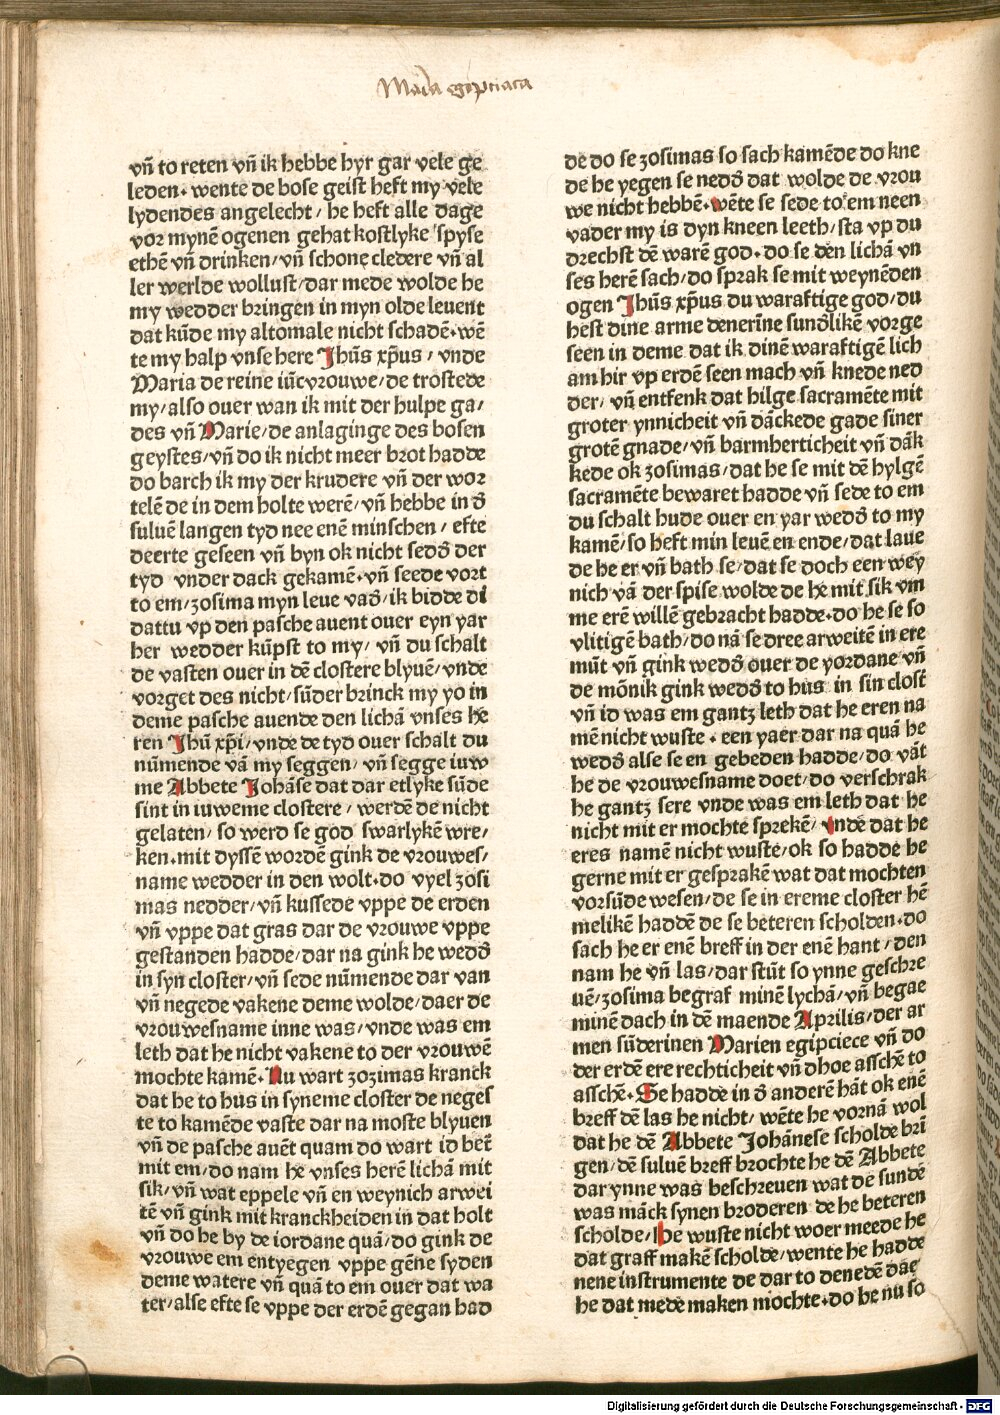 Maria egiptiaca
vn̄ to reten vn̄ ik hebbe hyr gar vele ge
leden. wente de bose geist heft my vele
lydendes angelecht/ he heft alle dage
vor mynē ogenen gehat kostlyke spyse
ethē vn̄ drinken/ vn̄ schone cledere vn̄ al
ler werlde wollust/ dar mede wolde he
my wedder bringen in myn olde leuent
dat kūde my altomale nicht schadē. wē
te my halp vnse here Jhūs xp̄us/ vnde
Maria de reine iūcvrouwe/ de trostede
my/ also ouer wan ik mit der hulpe ga/
des vn̄ Marie/ de anlaginge des bosen
geystes/ vn̄ do ik nicht meer brot hadde
do barch ik my der krudere vn̄ der wor
telē de in dem holte werē/ vn̄ hebbe in d̄
suluē langen tyd nee enē minschen/ efte
deerte geseen vn̄ byn ok nicht sedd̄ der
tyd vnder dack gekamē. vn̄ seede vort
to em/ zosima myn leue vad̄/ ik bidde di
dattu vp den pasche auent ouer eyn yar
her wedder kūpst to my/ vn̄ du schalt
de vasten ouer in dē clostere blyuē/ vnde
vorget des nicht/ sūder brinck my yo in
deme pasche auende den lichā vnses he
ren Jhū xp̄i/ vnde de tyd ouer schalt du
nūmende vā my seggen/ vn̄ segge iuw
me Abbete Johāse dat dar etlyke sūde
sint in iuweme clostere/ werdē de nicht
gelaten/ so werd se god swarlykē wre/
ken. mit dyssē wordē gink de vrouwes/
name wedder in den wolt. do vyel zosi
mas nedder/ vn̄ kussede vppe de erden
vn̄ vppe dat gras dar de vrouwe vppe
gestanden hadde/ dar na gink he wedd̄
in syn closter/ vn̄ sede nūmende dar van
vn̄ negede vakene deme wolde/ daer de
vrouwesname inne was/ vnde was em
leth dat he nicht vakene to der vrouwē
mochte kamē. Nu wart zozimas kranck
dat he to hus in syneme closter de neges
te to kamēde vaste dar na moste blyuen
vn̄ de pasche auēt quam do wart id bet̄
mit em/ do nam he vnses herē lichā mit
sik/ vn̄ wat eppele vn̄ en weynich arwei
tē vn̄ gink mit kranckheiden in dat holt
vn̄ do he by de iordane quā/ do gink de
vrouwe em entyegen vppe gēne syden
deme watere vn̄ quā to em ouer dat wa
ter/ alse efte se vppe der erdē gegan had
de do se zosimas so sach kamēde do kne
de he yegen se nedd̄ dat wolde de vrou
we nicht hebbē. wēte se sede to em neen
vader my is dyn kneen leeth/ sta vp du
drechst dē warē god. do se den lichā vn
ses herē sach/ do sprak se mit weynēden
ogen Jhūs xp̄us du waraftige god/ du
hest dine arme denerīne sund̄likē vorge
seen in deme dat ik dinē waraftigē lich
am hir vp erdē seen mach vn̄ knede ned
der/ vn̄ entfenk dat hilge sacramēte mit
groter ynnicheit vn̄ dāckede gade siner
grotē gnade/ vn̄ barmherticheit vn̄ dāk
kede ok zosimas/ dat he se mit dē hylgē
sacramēte bewaret hadde vn̄ sede to em
du schalt hude ouer en yar wedd̄ to my
kamē/ so heft min leuē en ende/ dat laue
de he er vn̄ bath se/ dat se doch een wey
nich vā der spise wolde de he mit sik vm
me erē willē gebracht hadde. do he se so
vlitigē bath/ do nā se dree arweitē in ere
mūt vn̄ gink wedd̄ ouer de yordane vn̄
de mōnik gink wedd̄ to hus in sin clost̄
vn̄ id was em gantz leth dat he eren na
mē nicht wuste. een yaer dar na quā he
wedd̄ alse se en gebeden hadde/ do vāt
he de vrouwesname doet/ do verschrak
he gantz sere vnde was em leth dat he
nicht mit er mochte sprekē/ vnde dat he
eres namē nicht wuste/ ok so hadde he
gerne mit er gesprakē wat dat mochten
vorsūde wesen/ de se in ereme closter hē
melikē haddē de se beteren scholden. do
sach he er enē breff in der enē hant/ den
nam he vn̄ las/ dar stūt so ynne geschre
uē/ zosima begraf minē lychā/ vn̄ begae
minē dach in dē maende Aprilis/ der ar
men sūderinen Marien egipciece vn̄ do
der erdē ere rechticheit vn̄ dhoe asschē to
asschē. Se hadde in d̄ anderē hāt ok enē
breff dē las he nicht/ wēte he vornā wol
dat he dē Abbete Johānese scholde bri
gen/ dē suluē breff brochte he dē Abbete
dar ynne was beschreuen wat de sundē
was māck synen broderen de he beteren
scholde/ He wuste nicht woer meede he
dat graff makē scholde/ wente he hadde
nene instrumente de dar to denedē dar
he dat mede maken mochte. do he nu so
Digitalisierung gefördert durch die Deutsche Forschungsgemeinschaft - DFG